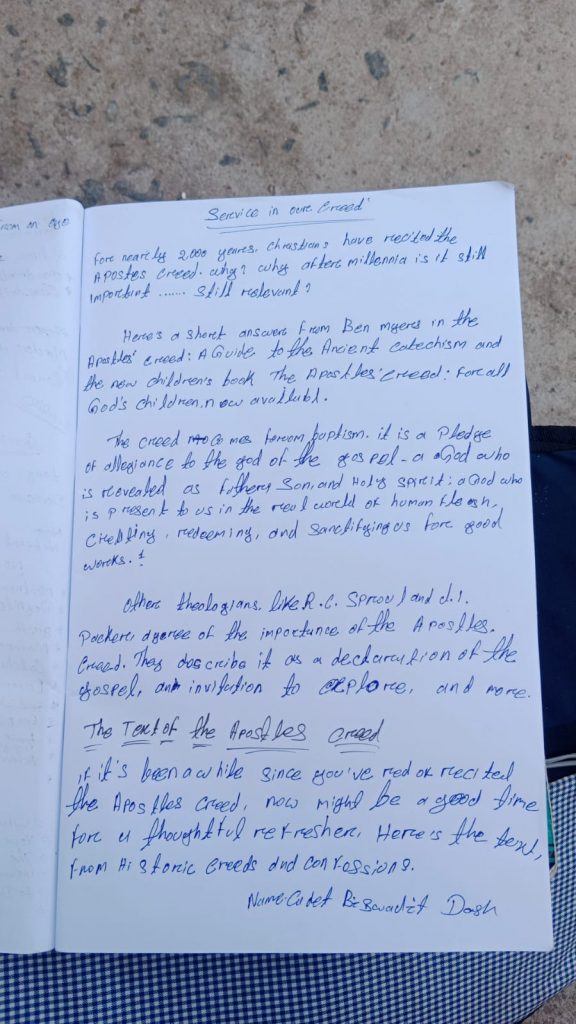 From an eye
Service in our Creed'
Fore nearly 2,000 yeares. christians have recited the
Apostes creed. why? why aftere millennia is it still
important ...... still relevant?
Here's a short answere from Ben myers in the
Apostles' creed: A Guide to the Ancient catechism and
the new children's book The Apostles' creed: fore all
God's children. now availabl.
The creed comes from baptism. it is a pledge
of allegiance to the god of the gospel - a God who
is revealed as father, Son, and Holy spirit: a God who
is present to us in the real world of human flesh,
creating, redeeming, and sanctifying us fore good
works. 1
Othere theologians, like R.C. Sproul and J.I.
Packere, agree of the importance of the Apostles.
Creed. They describe it as a declaration of the
gospel, an invitation to explore, and more.
The Text of the Apostles creed
if it's been a while since you've red ok recited
the Apostles creed, now might be a good time
fore a thoughtful refreshere, Here's the text,
from Historic creeds and confessions.
Name: Cadet Dash